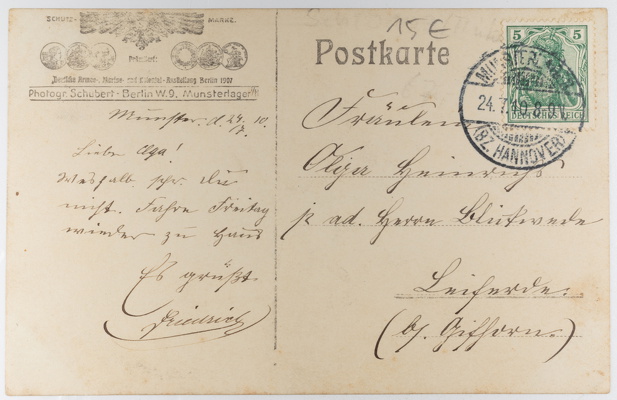 SCHUTZ- MARKE.
Prämiiert:
Deutsche Armee-, Marine- und Kolonial-Ausstellung Berlin 1907
Photogr. Schubert - Berlin W.9, Munsterlager
15 €
Postkarte
5 5
DEUTSCHES REICH
MUNSTER
24.7.10.8-9V.
(BZ. HANNOVER)
Munster d. 24. 10.
7.
Liebe Olga!
Weshalb schr. Du
nicht. Fahre Freitag
wieder zu Haus
Es grüßt.
Friedrich
Fräulein
Olga Heinrichs
p ad. Herrn Blickwede
Leiferde.
(bz. Gifhorn.)